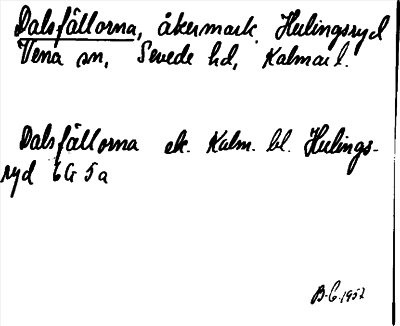 Dalsfällorna, åkermark, Hulingsryd
Vena sn, Sevede hd, Kalmar l.
Dalsfällorna ek. Kalm. bl. Hulings-
ryd 6G 5a
B-G. 1957